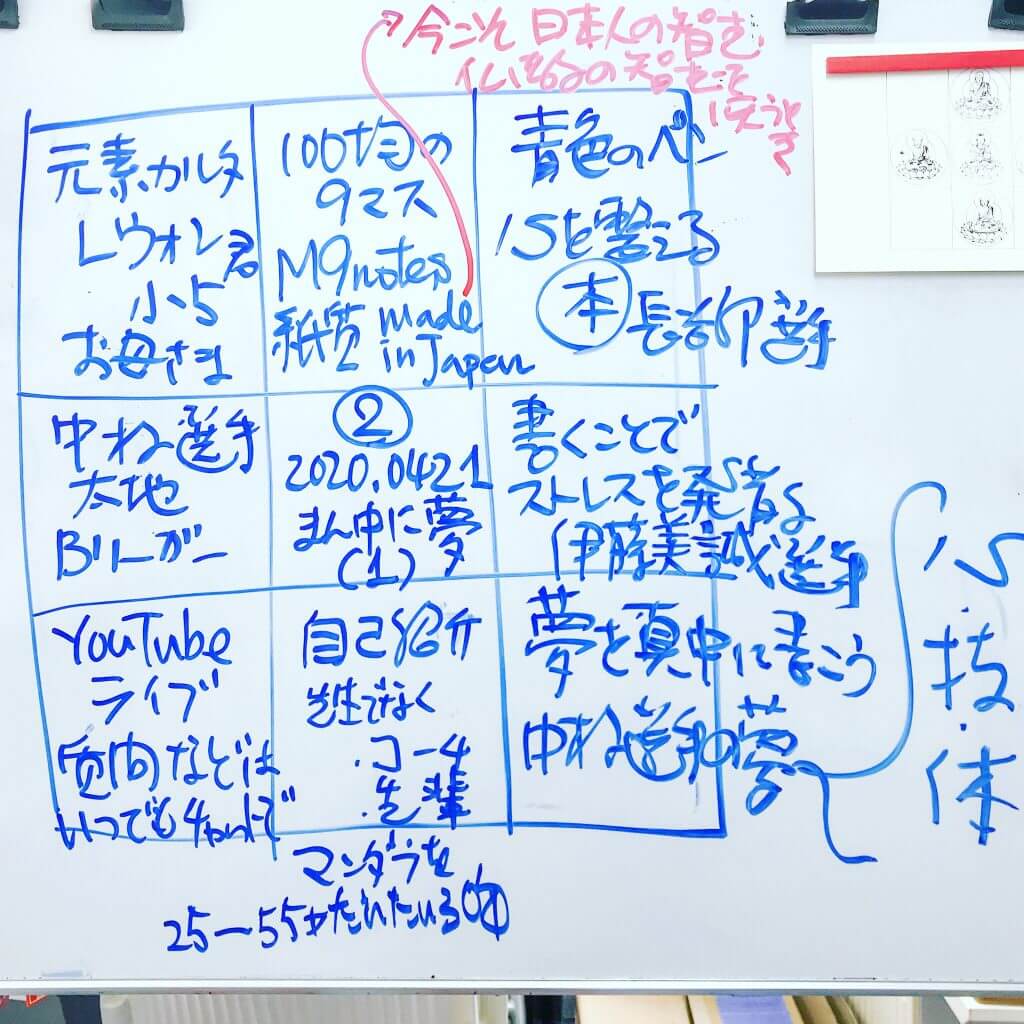 今こそ日本人の智を
仏教の智をここで
使うとき
元素カルタ
Lウォン君
小5
お母さま
100均の
9マス
M9notes
紙質 made
in Japan
青色のペン
心を整える
本 長谷部選手
中ね選手
太地
Bリーガー
②
2020.0421
まん中に夢
(1)
書くことで
ストレスを発者
伊藤美誠選手
YouTube
ライブ
質問などは
いつでもチャットで
自己紹介
先生でなく
・コーチ
・先輩
夢を真中に書こう
中ね選手の夢
心・技・体
マンダラを
25ー55